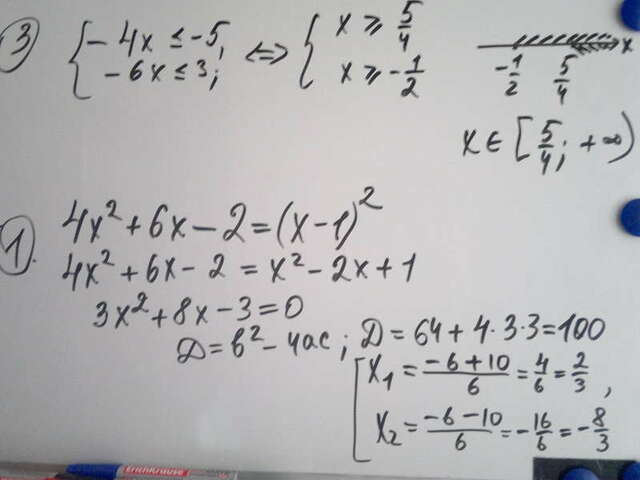 3) { -4x ≤ -5, ⇔ { x ⩾ 5/4
-6x ≤ 3; x ⩾ -1/2
-1/2 5/4 x
x ∈ [5/4; +∞)
1. 4x² + 6x - 2 = (x - 1)²
4x² + 6x - 2 = x² - 2x + 1
3x² + 8x - 3 = 0
D = b² - 4ac ; D = 64 + 4·3·3 = 100
[ x₁ = (-6 + 10)/6 = 4/6 = 2/3 ,
x₂ = (-6 - 10)/6 = -16/6 = -8/3
ErichKrause